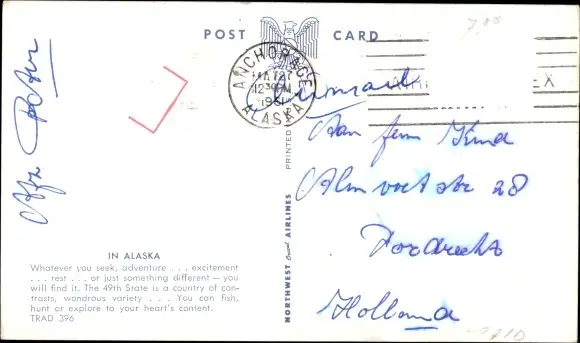 POST CARD
7,00
ANCHORAGE
MAY 27
12 30 PM
1961
ALASKA
X
Afz Pater
Aan fam
28
Dordrecht
Holland
PRINTED
NORTHWEST Orient AIRLINES
IN ALASKA
Whatever you seek, adventure . . . excitement
. . . rest . . . or just something different — you
will find it. The 49th State is a country of con-
trasts, wondrous variety . . . You can fish,
hunt or explore to your heart's content.
TRAD 396